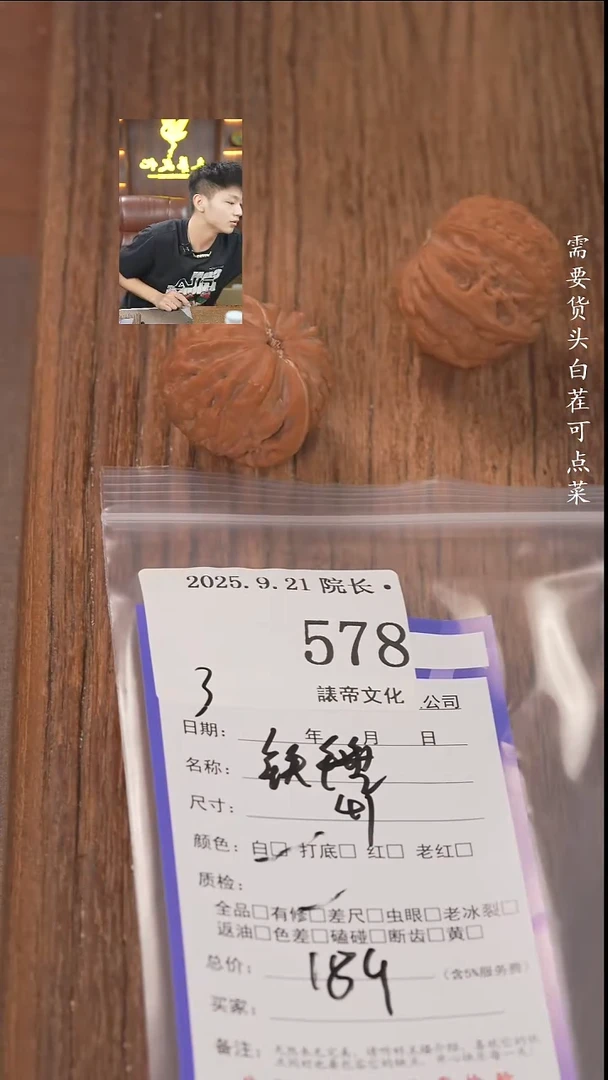 需要货头白茬可点菜
2025.9.21 院长·
578
3
䘛帝文化 公司
日期： 年 月 日
名称：
尺寸： 41
颜色：白□ 打底□ 红□ 老红□
质检：
全品□有修□差尺□虫眼□老冰裂□
返油□色差□磕碰□断齿□黄□
总价： 184 （含5%服务费）
买家：
备注：